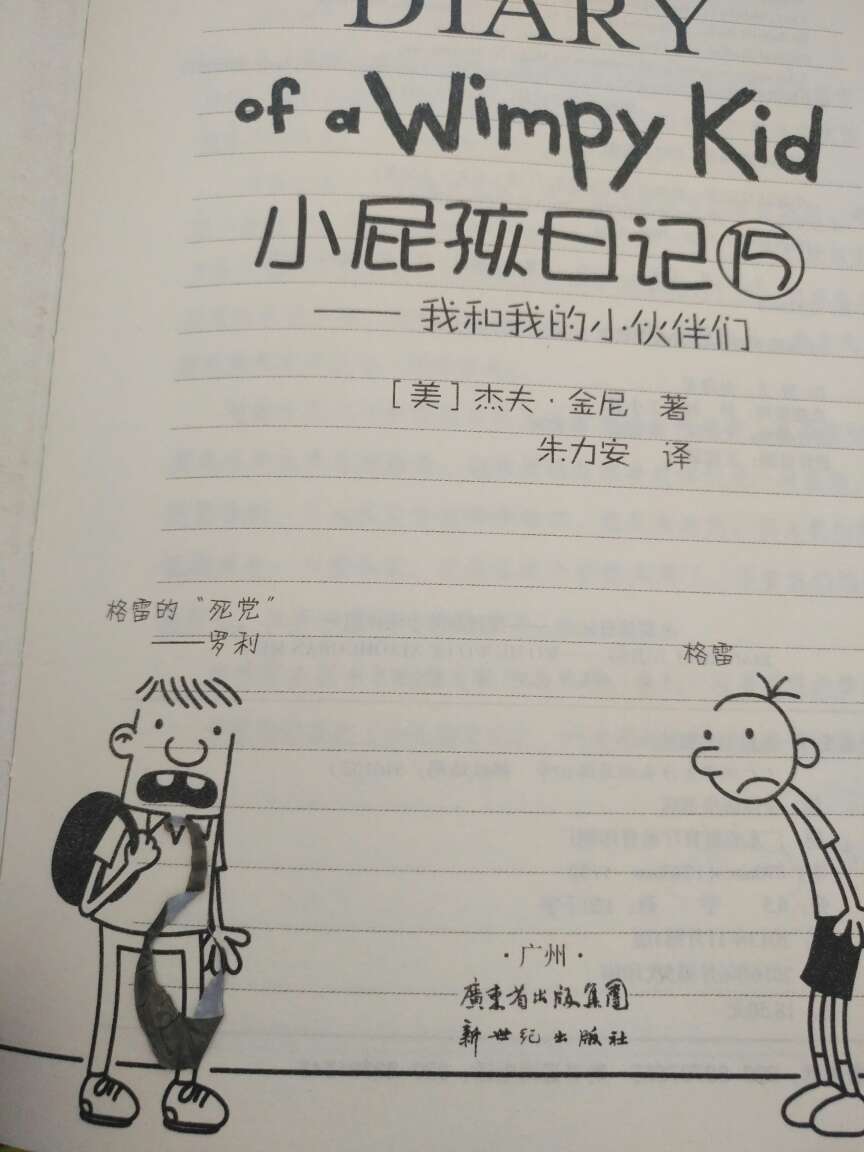 DIARY
of a Wimpy Kid
小屁孩日记⑮
—— 我和我的小伙伴们
[美] 杰夫·金尼 著
朱力安 译
格雷的“死党”
——罗利
格雷
·广州·
廣東省出版集團
新世纪出版社